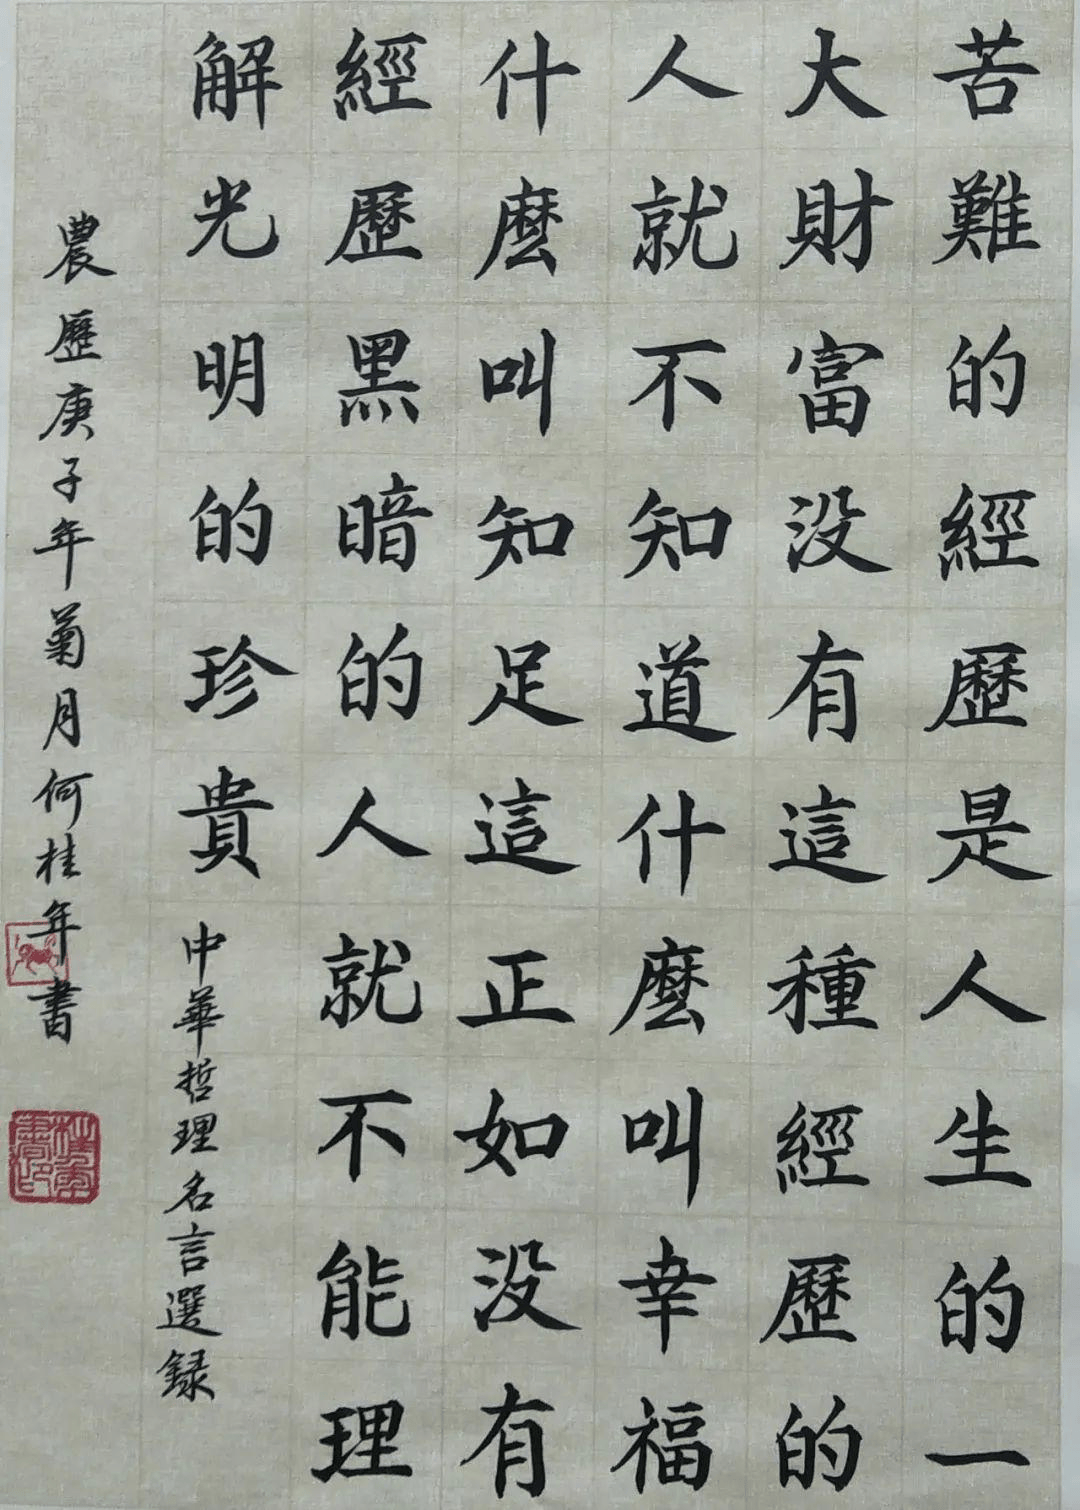 苦難的經歷是人生的一
大財富没有這種經歷的
人就不知道什麽叫幸福
什麽叫知足這正如没有
經歷黑暗的人就不能理
解光明的珍貴
中華哲理名言選録
農歷庚子年菊月何桂年書